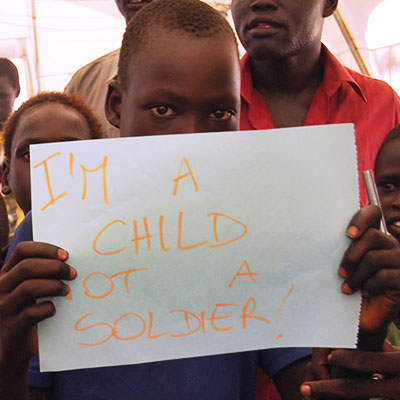 I'M A
CHILD
NOT A
SOLDIER!